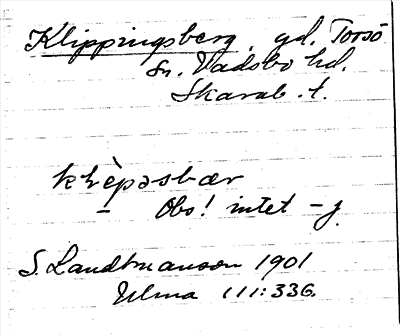 Klippingsberg, gd. Torsö
sn. Vadsbo hd.
Skarab. l.
klèpəsbær
Obs! intet -j
S. Landtmanson 1901
Ulma 111:336.